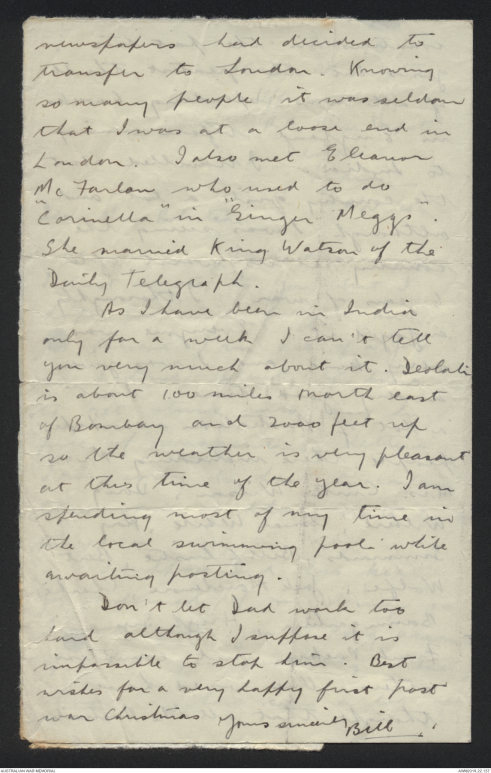 newspapers had decided to
transfer to London. Knowing
so many people it was seldom
that I was at a loose end in
London. I also met Eleanor
McFarlan who used to do
"Corinella" in "Ginger Meggs".
She married King Watson of the
Daily Telegraph.
As I have been in India
only for a week I can't tell
you very much about it. Deolali
is about 100 miles north east
of Bombay and 2000 feet up
so the weather is very pleasant
at this time of the year. I am
spending most of my time in
the local swimming pool while
awaiting posting.
Don't let Dad work too
hard although I suppose it is
impossible to stop him. Best
wishes for a very happy first post
war Christmas Yours sincerely
Bill.
AUSTRALIAN WAR MEMORIAL